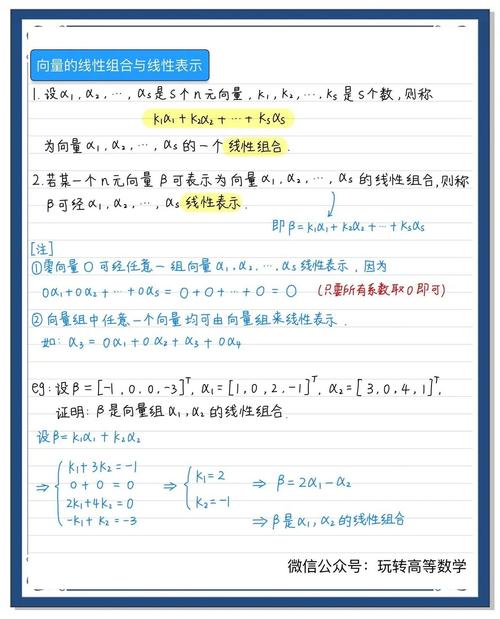 向量的线性组合与线性表示
1. 设α₁, α₂, ⋯, αₛ是s个n元向量, k₁, k₂, ⋯, kₛ是s个数, 则称
k₁α₁ + k₂α₂ + ⋯ + kₛαₛ
为向量α₁, α₂, ⋯, αₛ的一个线性组合.
2. 若某一个n元向量β可表示为向量α₁, α₂, ⋯, αₛ的线性组合, 则称
β可经α₁, α₂, ⋯, αₛ线性表示.
即β = k₁α₁ + k₂α₂ + ⋯ + kₛαₛ
[注]
①零向量0可经任意一组向量α₁, α₂, ⋯, αₛ线性表示, 因为
0α₁ + 0α₂ + ⋯ + 0αₛ = 0 + 0 + ⋯ + 0 = 0 (只要所有系数取0即可)
②向量组中任意一个向量均可由向量组来线性表示.
如: α₃ = 0α₁ + 0α₂ + α₃ + 0α₄
eg: 设β = [-1, 0, 0, -3]ᵀ, α₁ = [1, 0, 2, -1]ᵀ, α₂ = [3, 0, 4, 1]ᵀ,
证明: β是向量组α₁, α₂的线性组合.
设β = k₁α₁ + k₂α₂
⇒ { k₁ + 3k₂ = -1
0 + 0 = 0
2k₁ + 4k₂ = 0
-k₁ + k₂ = -3
⇒ { k₁ = 2
k₂ = -1
⇒ β = 2α₁ - α₂
⇒ β是α₁, α₂的线性组合
微信公众号：玩转高等数学